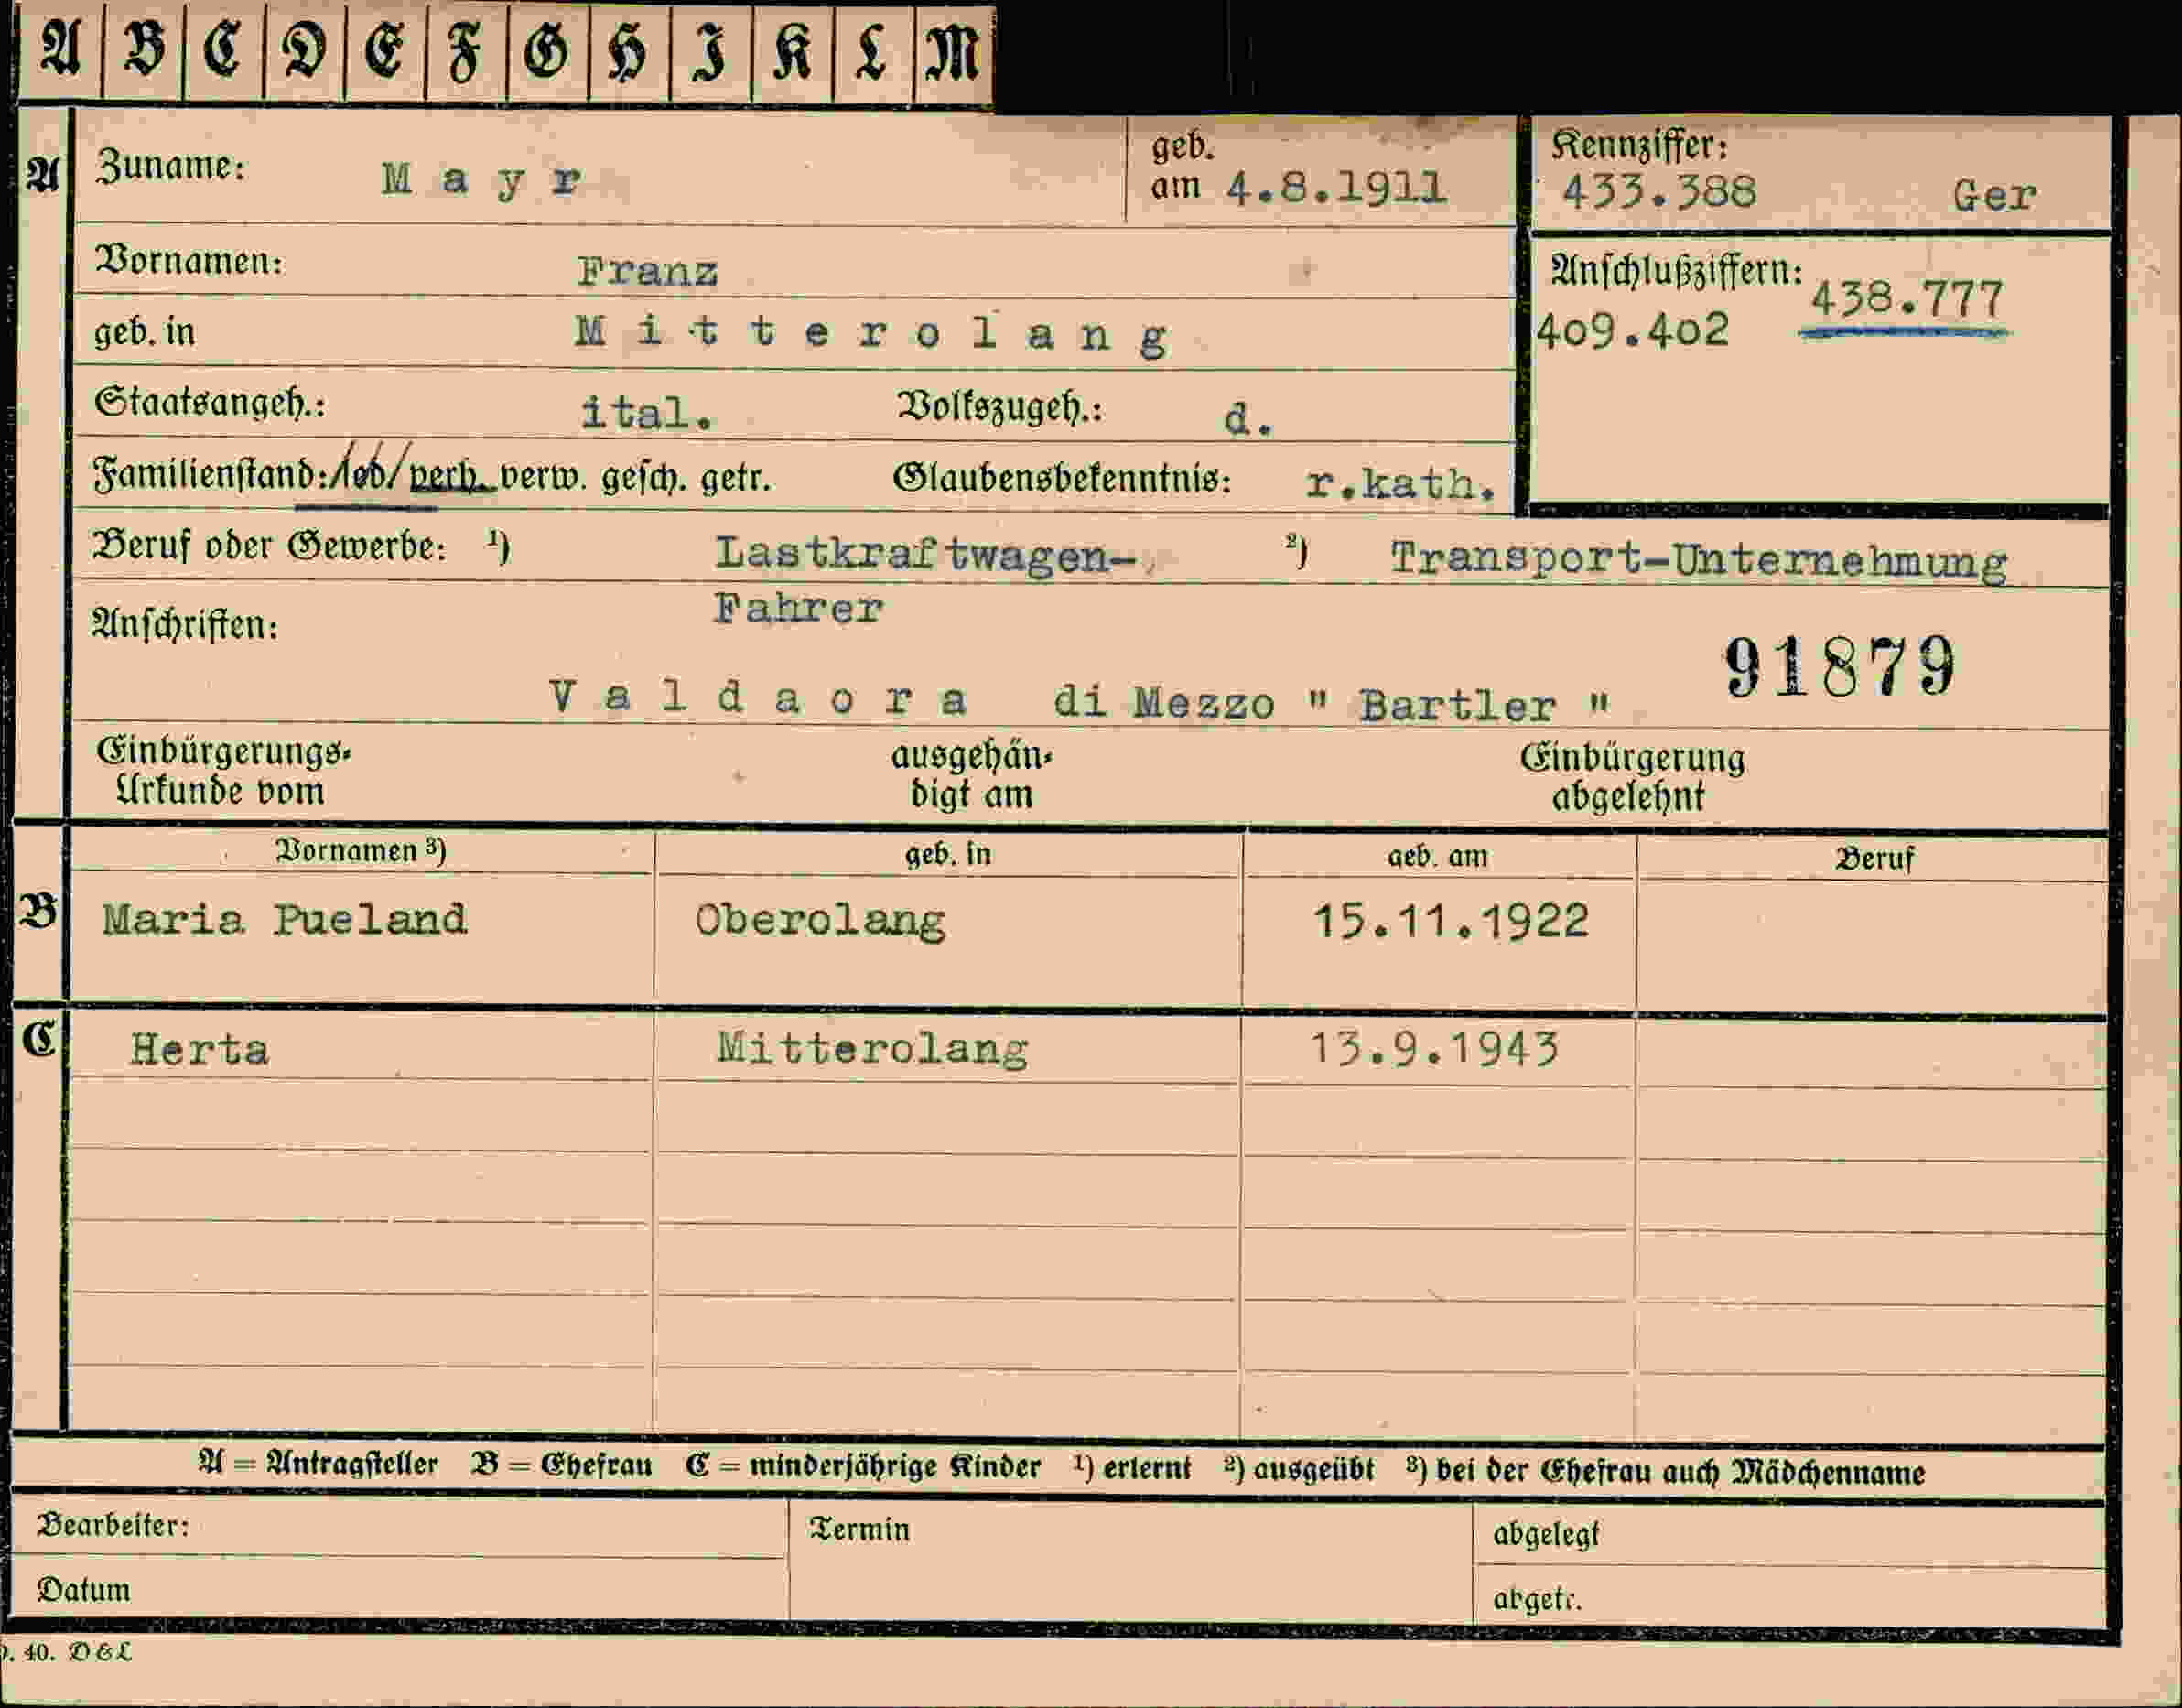 A B C D E F G H I K L M
A Zuname: Mayr geb. am 4.8.1911 Kennziffer: 433.388 Ger
Vornamen: Franz
geb. in Mitterolang Anschlußziffern: 409.402 438.777
Staatsangeh.: ital. Volkszugeh.: d.
Familienstand: led/ verh. verw. gesch. getr. Glaubensbekenntnis: r.kath.
Beruf oder Gewerbe: ¹) Lastkraftwagen- ²) Transport-Unternehmung
Fahrer
Anschriften:
91879
Valdaora di Mezzo " Bartler "
Einbürgerungs- ausgehän- Einbürgerung
Urkunde vom digt am abgelehnt
Vornamen ³) geb. in geb. am Beruf
B Maria Pueland Oberolang 15.11.1922
C Herta Mitterolang 13.9.1943
A = Antragsteller B = Ehefrau C = minderjährige Kinder ¹) erlernt ²) ausgeübt ³) bei der Ehefrau auch Mädchenname
Bearbeiter: Termin abgelegt
Datum abgetr.
40. D&L